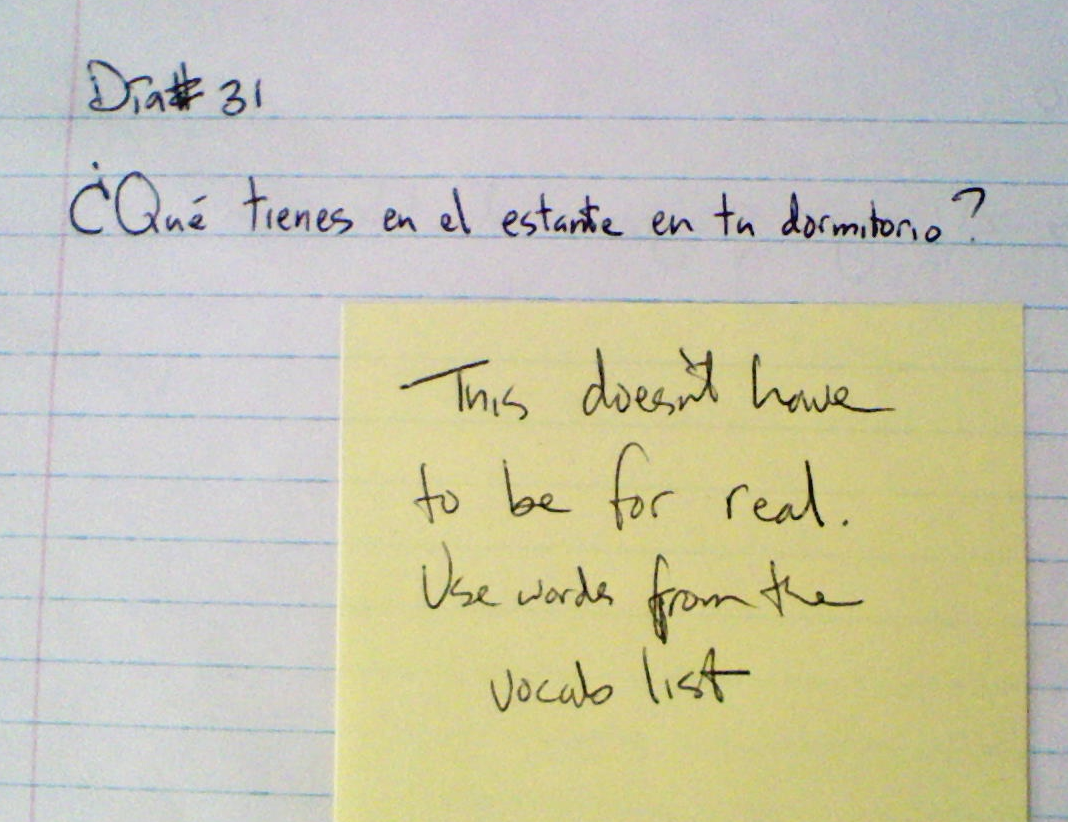 Día# 31
¿Qué tienes en el estante en tu dormitorio?
This doesn't have
to be for real.
Use words from the
vocab list